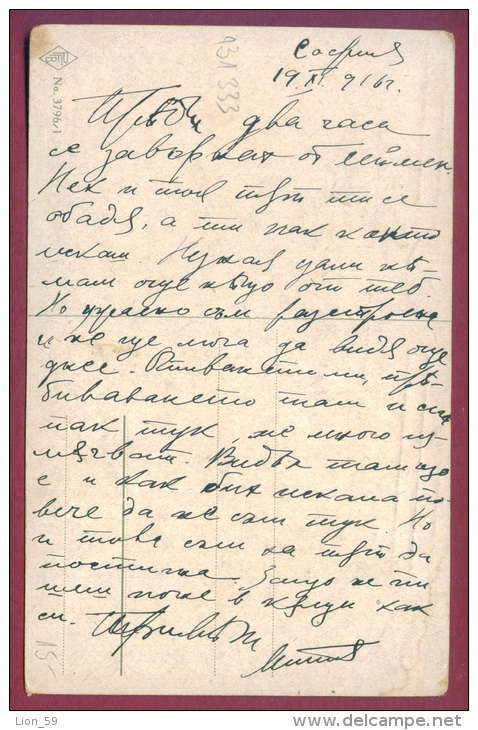 No. 3796/1
931 333
София
19 XI 916 г.
Прѣди два часа
се завърнах от
Нек и тоя път ти се
обадя, а ти пак както
искаш. Незная дали нѣ-
мам още нѣщо от теб.
Но ужасно съм разстроена
и не ще мога да видя още
днес. Отиването ми, прѣ-
биваването там и сега
пак тук, ме много из-
мъчват. Видѣх там що
е и как бих искала по-
вече да не съм тук. Но
и това съм на път да
постигна. Защо не ти
пиш поне в как
си. Привѣт
15
Lion_59